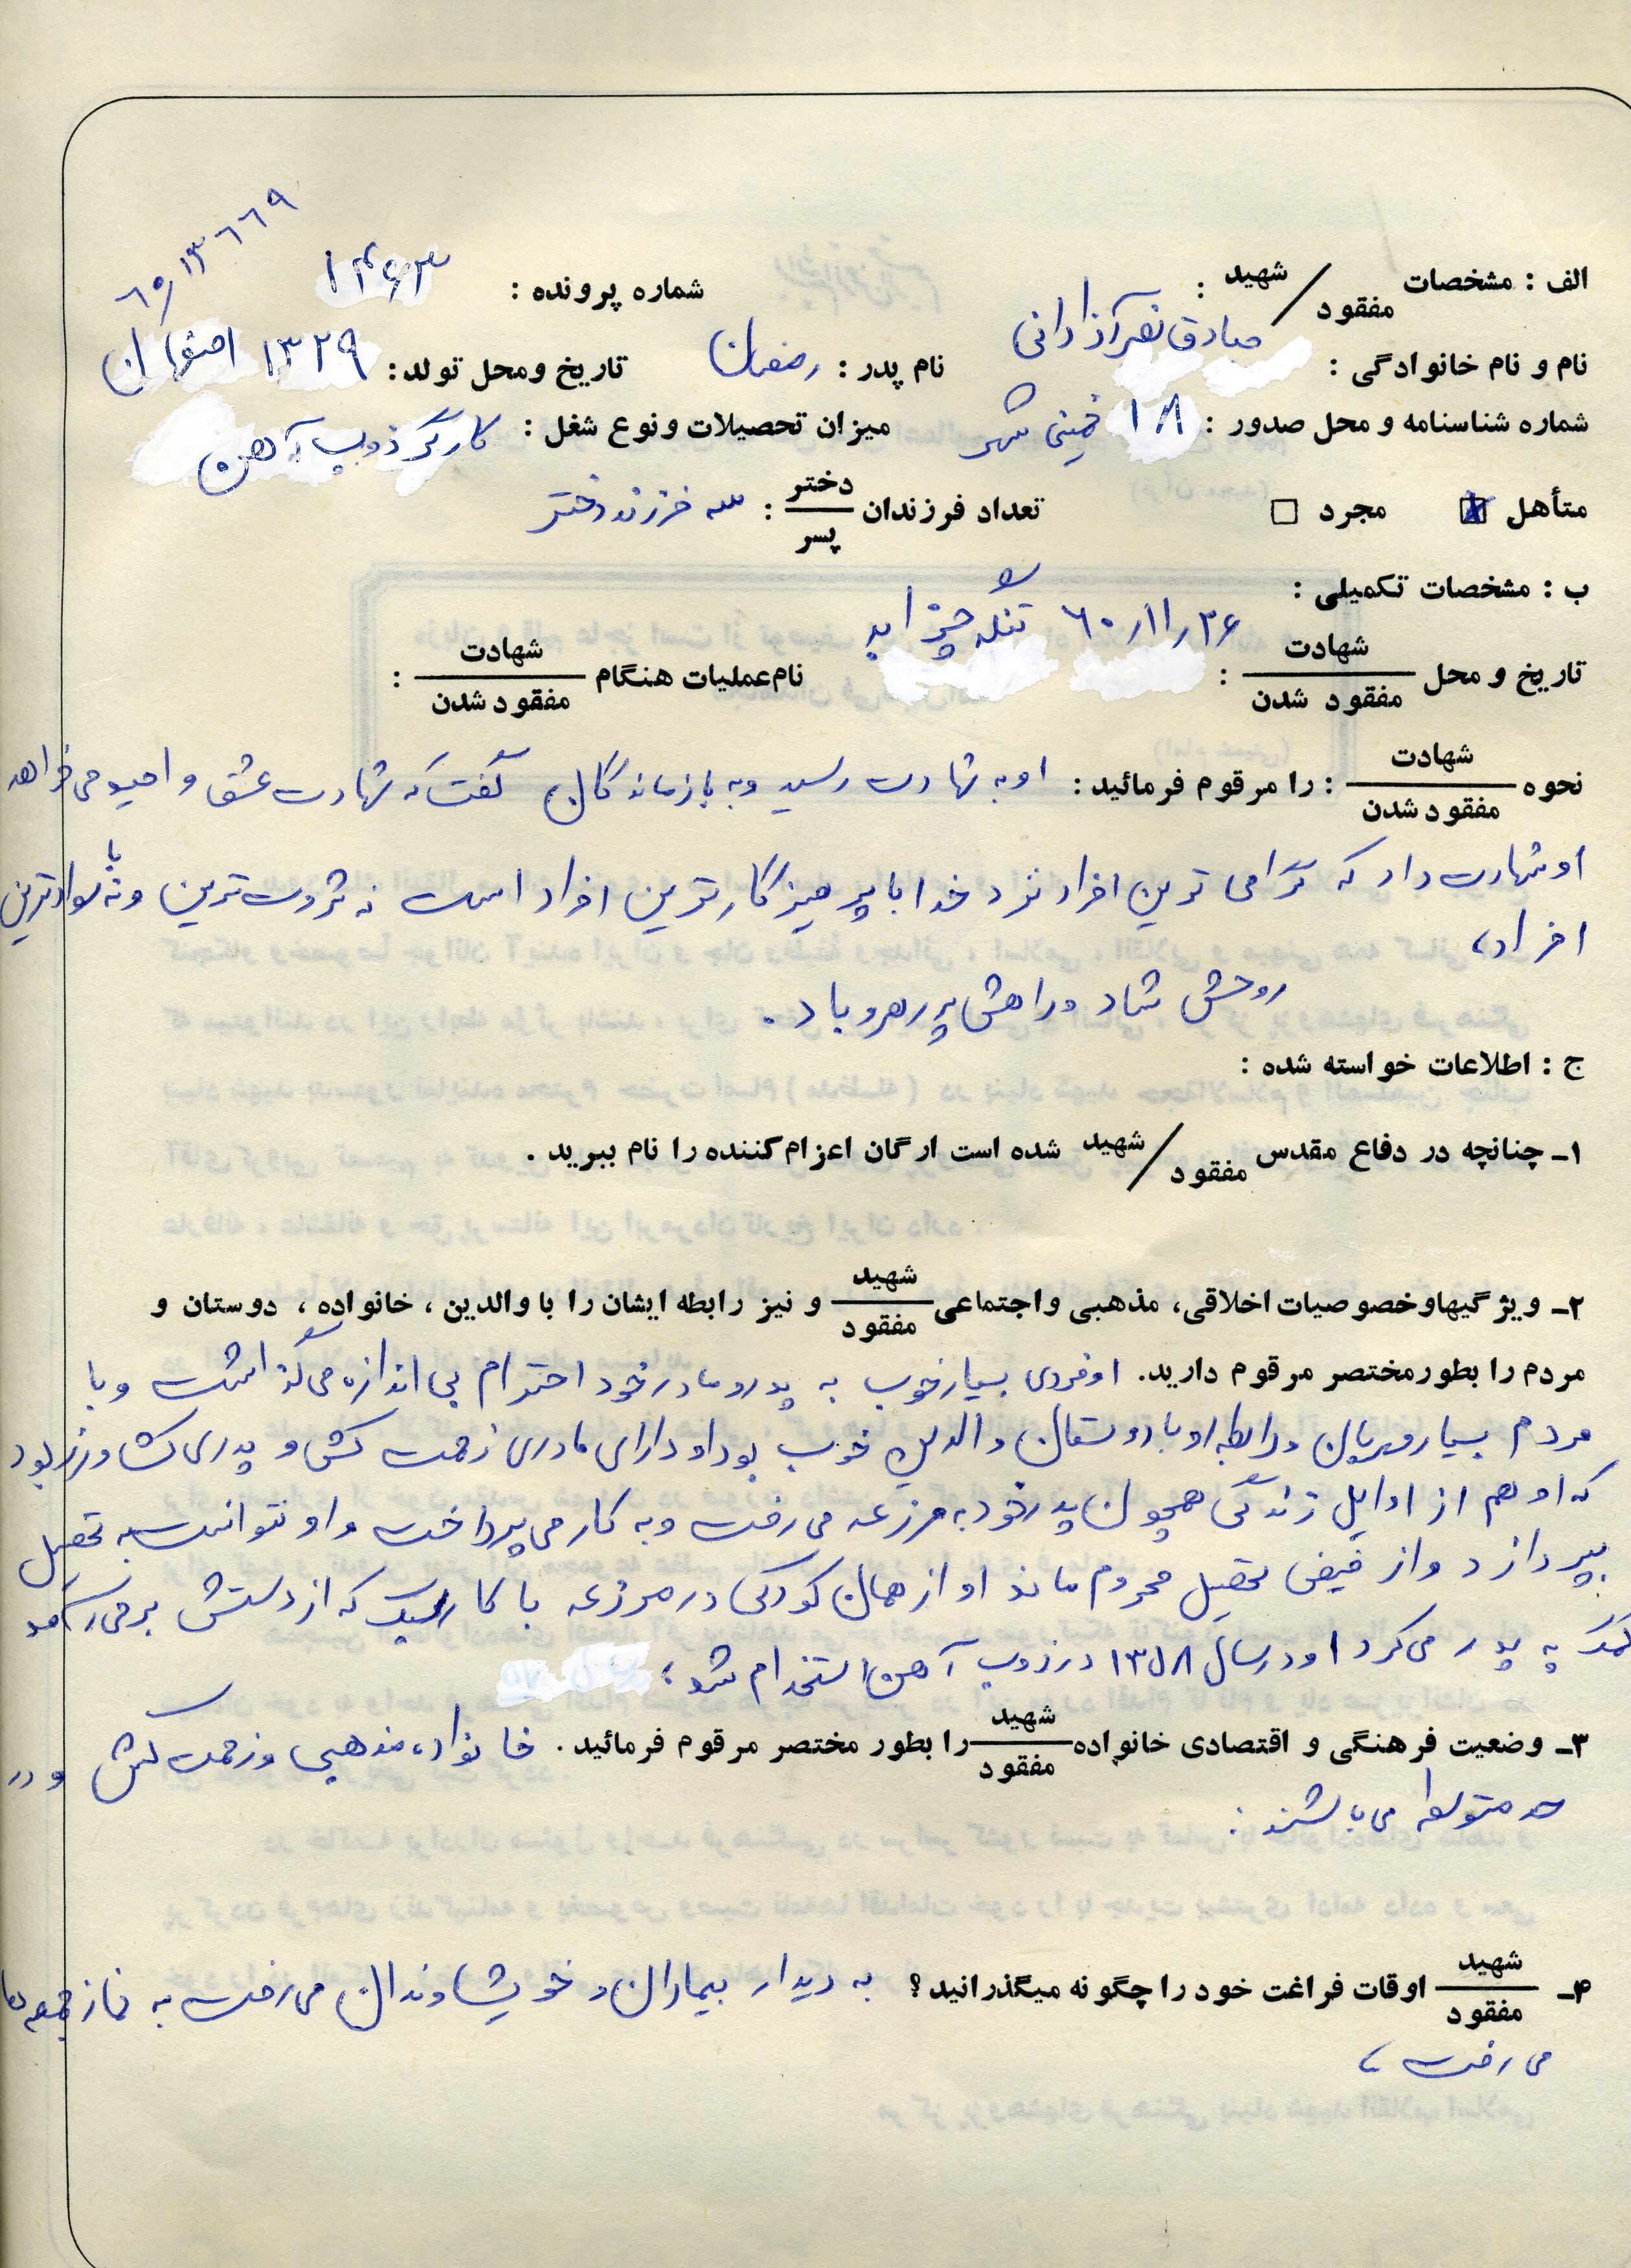 ۶۰/۱۳۶۶۹
الف : مشخصات شهید / مفقود :
شماره پرونده : ۱۴۶۳
نام و نام خانوادگی : صادق نصرآزادانی نام پدر : رمضان تاریخ ومحل تولد : ۱۳۲۹ اصفهان
شماره شناسنامه و محل صدور : ۱۸ خمینی شهر میزان تحصیلات ونوع شغل : کارگر ذوب آهن
متأهل ☒ مجرد ☐ تعداد فرزندان دختر / پسر : سه فرزند دختر
ب : مشخصات تکمیلی :
تاریخ و محل شهادت / مفقود شدن : ۶۰/۱۱/۲۶ تنگه چزابه نام عملیات هنگام شهادت / مفقود شدن :
نحوه شهادت / مفقود شدن : را مرقوم فرمائید : او به شهادت رسید و به بازماندگان گفت که شهادت عشق و امید می خواهد
او شهادت داد که گرامی ترین افراد نزد خدا با پرهیزکارترین افراد است نه ثروت ترین و نه با سوادترین
افراد،
روحش شاد و راهش پر رهرو باد .
ج : اطلاعات خواسته شده :
۱ـ چنانچه در دفاع مقدس شهید / مفقود شده است ارگان اعزام کننده را نام ببرید .
۲ـ ویژگیهاوخصوصیات اخلاقی، مذهبی واجتماعی شهید / مفقود و نیز رابطه ایشان را با والدین ، خانواده ، دوستان و
مردم را بطورمختصر مرقوم دارید. او فردی بسیار خوب به پدر و مادر خود احترام بی اندازه می گذاشت و با
مردم بسیار مهربان و رابطه او با دوستان و الدین خوب بود او دارای مادری زحمت کش و پدری کشاورز بود
که او هم از اوایل زندگی همچون پدر خود به مزرعه می رفت و به کار می پرداخت و او نتوانست به تحصیل
بپردازد و از فیض تحصیل محروم ماند او از همان کودکی در مزرعه با کار که از دستش بر می آمد
کمک به پدر می کرد او در سال ۱۳۵۸ در ذوب آهن استخدام شد ؛
۳ـ وضعیت فرهنگی و اقتصادی خانواده شهید / مفقود را بطور مختصر مرقوم فرمائید . خانواده مذهبی و زحمت کش و در
حد متوسط می باشند .
۴ـ شهید / مفقود اوقات فراغت خود را چگونه میگذرانید ؟ به دیدار بیماران و خویشاوندان می رفت به نماز جمعه ها
می رفت ،